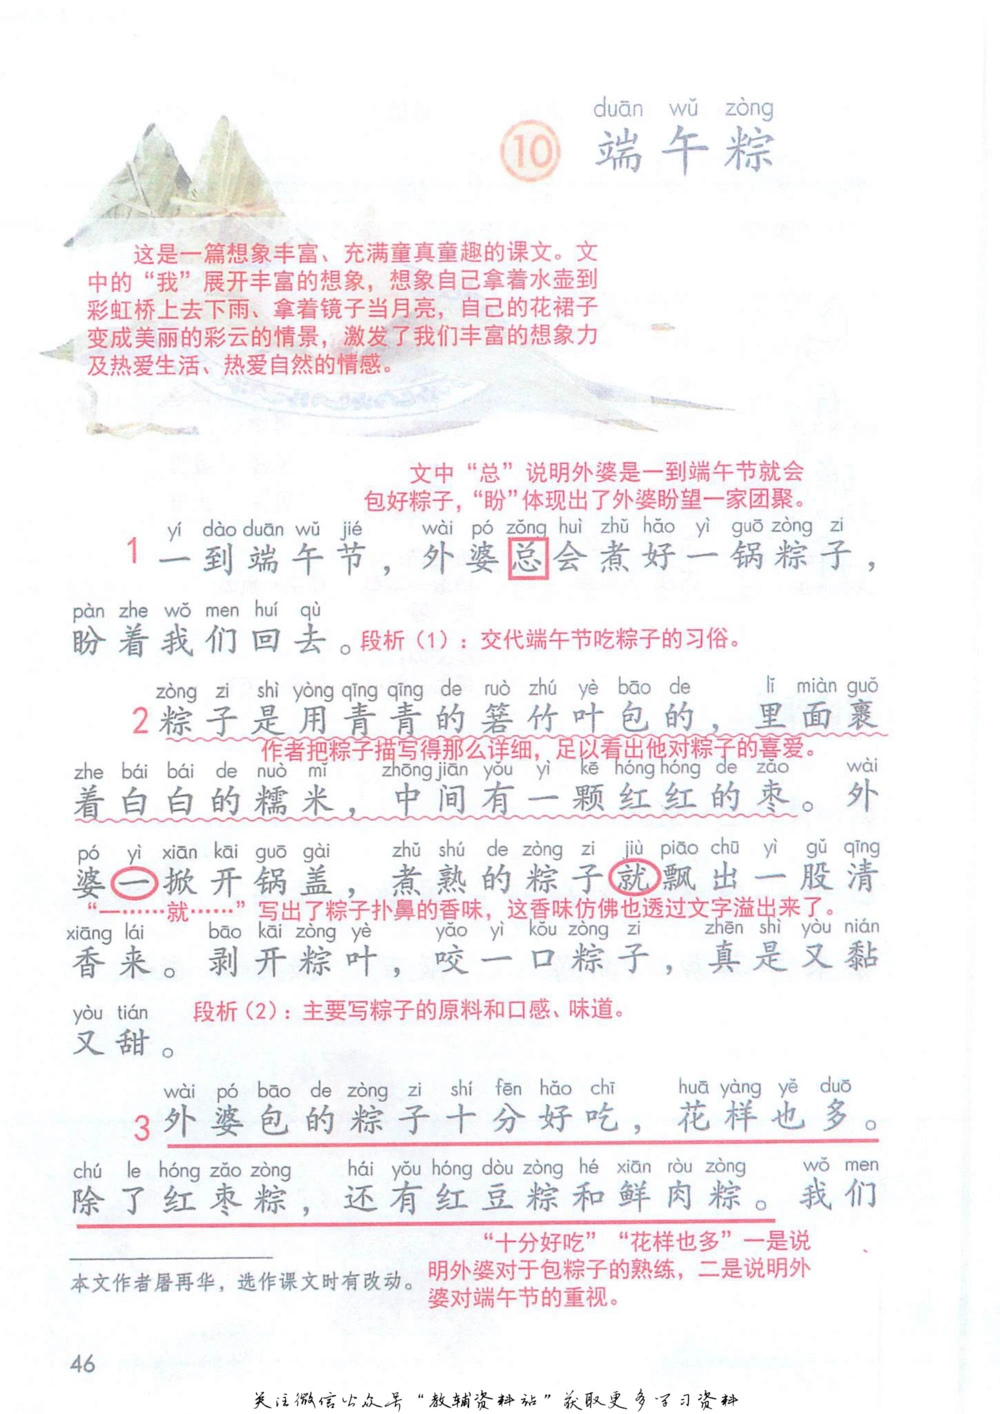 duān wǔ zòng
10 端午粽
这是一篇想象丰富、充满童真童趣的课文。文
中的“我”展开丰富的想象，想象自己拿着水壶到
彩虹桥上去下雨、拿着镜子当月亮，自己的花裙子
变成美丽的彩云的情景，激发了我们丰富的想象力
及热爱生活、热爱自然的情感。
文中“总”说明外婆是一到端午节就会
包好粽子，“盼”体现出了外婆盼望一家团聚。
yí dào duān wǔ jié wài pó zǒng huì zhǔ hǎo yì guō zòng zi
1 一到端午节，外婆总会煮好一锅粽子，
pàn zhe wǒ men huí qù
盼着我们回去。段析（1）：交代端午节吃粽子的习俗。
zòng zi shì yòng qīng qīng de ruò zhú yè bāo de lǐ miàn guǒ
2 粽子是用青青的箬竹叶包的，里面裹
作者把粽子描写得那么详细，足以看出他对粽子的喜爱。
zhe bái bái de nuò mǐ zhōng jiān yǒu yì kē hóng hóng de zǎo wài
着白白的糯米，中间有一颗红红的枣。外
pó yì xiān kāi guō gài zhǔ shú de zòng zi jiù piāo chū yì gǔ qīng
婆一掀开锅盖，煮熟的粽子就飘出一股清
“一……就……”写出了粽子扑鼻的香味，这香味仿佛也透过文字溢出来了。
xiāng lái bāo kāi zòng yè yǎo yì kǒu zòng zi zhēn shì yòu nián
香来。剥开粽叶，咬一口粽子，真是又黏
yòu tián 段析（2）：主要写粽子的原料和口感、味道。
又甜。
wài pó bāo de zòng zi shí fēn hǎo chī huā yàng yě duō
3 外婆包的粽子十分好吃，花样也多。
chú le hóng zǎo zòng hái yǒu hóng dòu zòng hé xiān ròu zòng wǒ men
除了红枣粽，还有红豆粽和鲜肉粽。我们
“十分好吃”“花样也多”一是说
明外婆对于包粽子的熟练，二是说明外
婆对端午节的重视。
本文作者屠再华，选作课文时有改动。
46
关注微信公众号“教辅资料站”获取更多学习资料